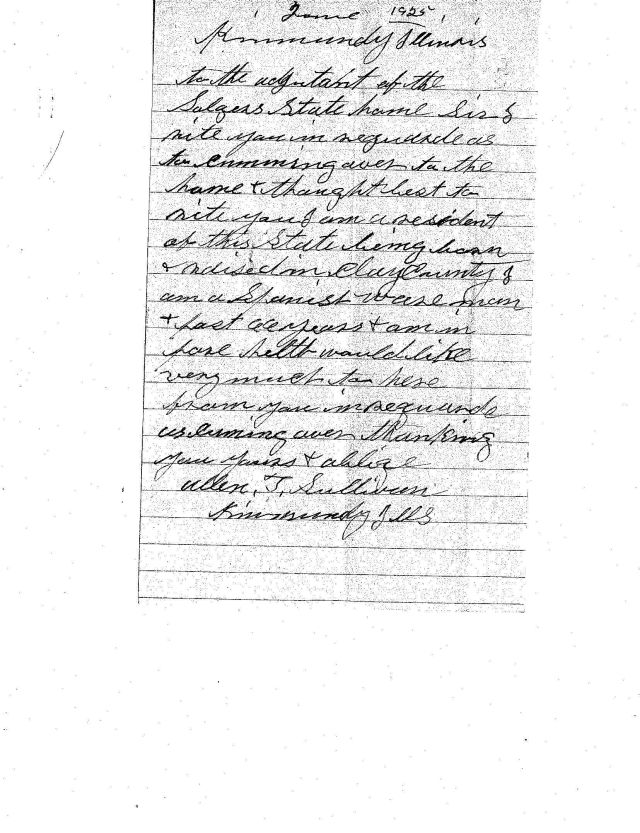 June 1925
Kinmundy Illinois
to the adjutant of the
Solgers State home Sir I
rite you in reguarde as
to cumming over to the
home & thought best to
rite you I am a resident
of this State being born
& raised in Clay County I
am a Spanist Ware man
& past years & am in
pore helth would like
very much to here
from you in reguarde
as cuming over thanking
you yours & oblige
allen, T, Sullivan
Kinmundy Ills